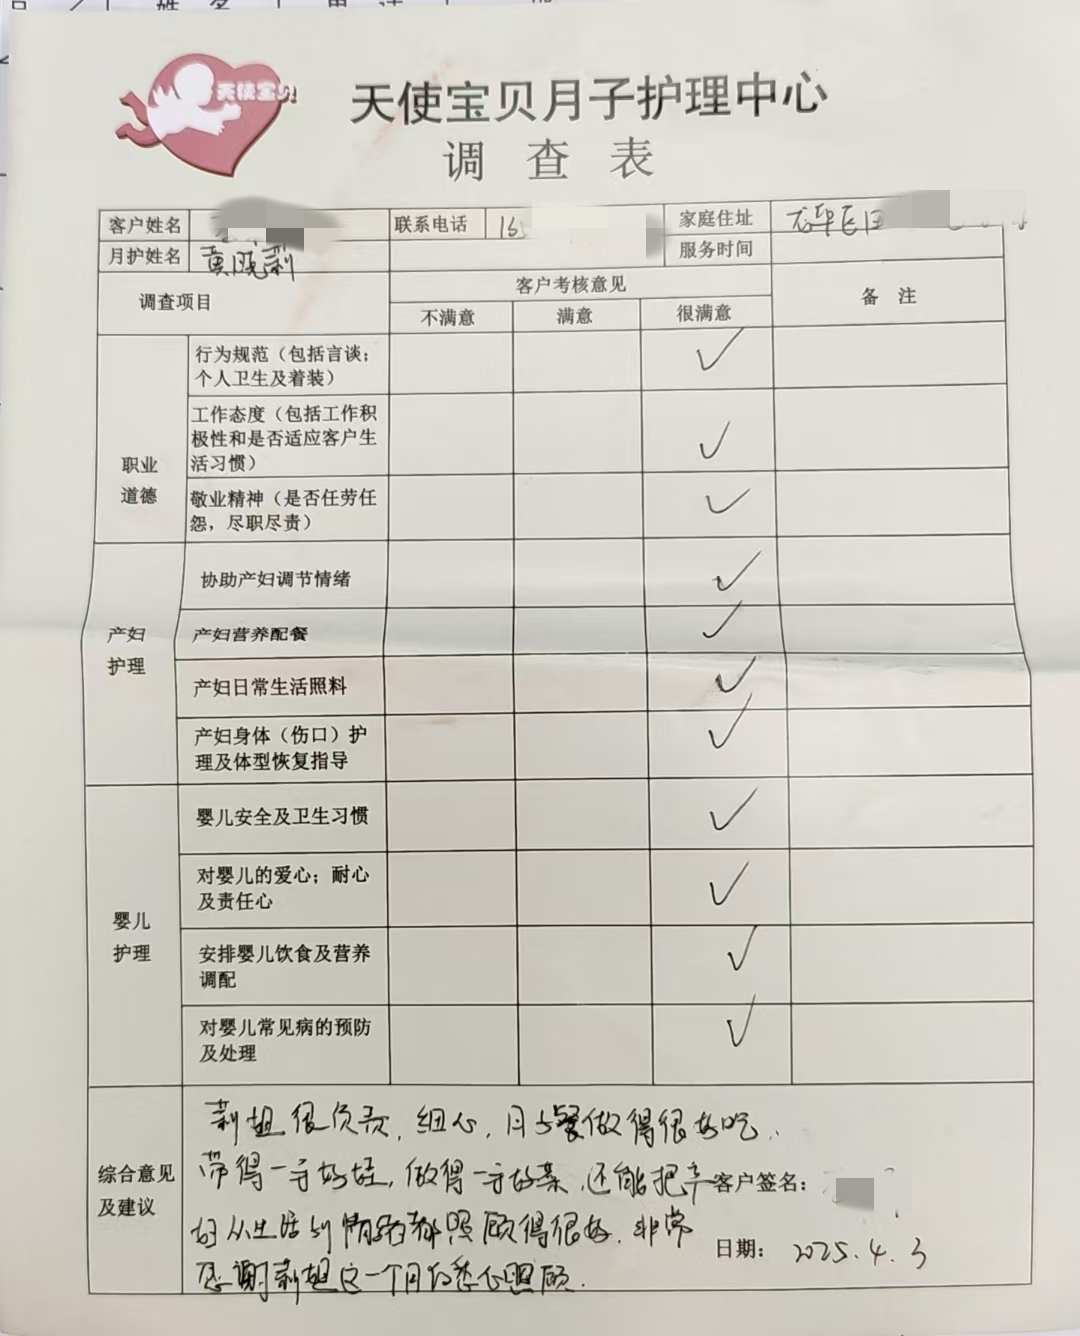 天使宝贝
天使宝贝月子护理中心
调查表
客户姓名 联系电话 家庭住址
月护姓名 黄晓莉 服务时间
调查项目 客户考核意见 备 注
不满意 满意 很满意
职业
道德
行为规范（包括言谈；
个人卫生及着装）
工作态度（包括工作积
极性和是否适应客户生
活习惯）
敬业精神（是否任劳任
怨，尽职尽责）
产妇
护理
协助产妇调节情绪
产妇营养配餐
产妇日常生活照料
产妇身体（伤口）护
理及体型恢复指导
婴儿
护理
婴儿安全及卫生习惯
对婴儿的爱心；耐心
及责任心
安排婴儿饮食及营养
调配
对婴儿常见病的预防
及处理
综合意见
及建议
莉姐很负责，细心，月子餐做得很好吃，
带得一手好娃，做得一手好菜，还能把产
妇从生活到情绪都照顾得很好，非常
感谢莉姐这一个月的悉心照顾．
客户签名：
日期： 2025.4.3